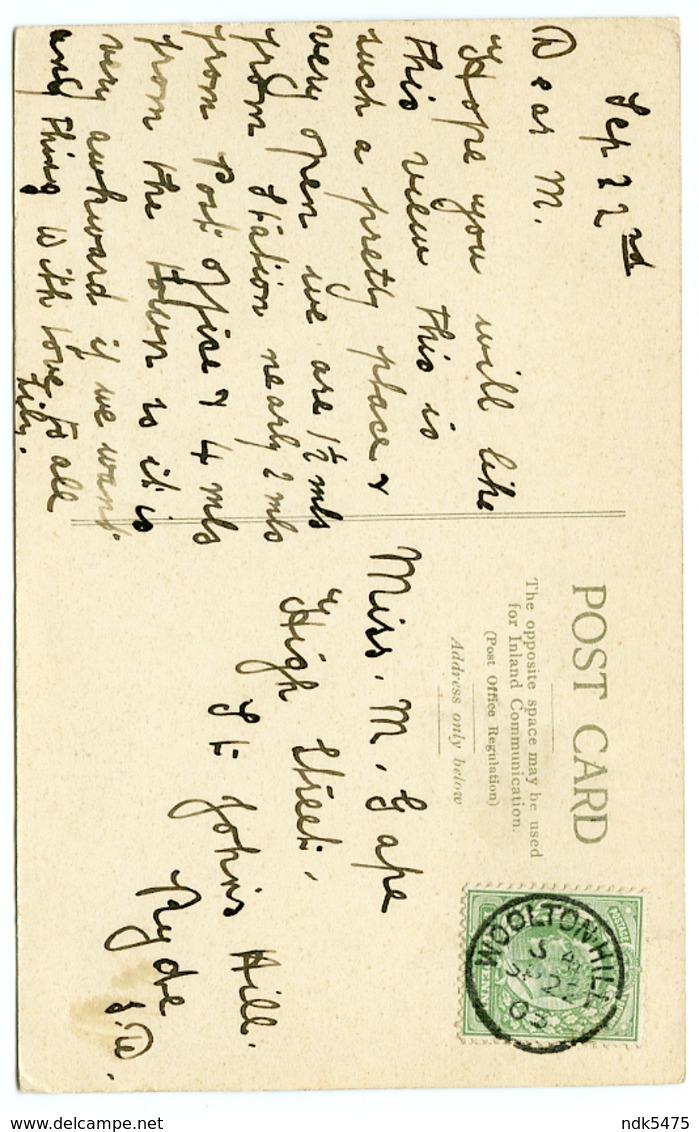 Sep 22nd
Dear M.
Hope you will like
this view this is
such a pretty place &
very open we are 1½ mls
from Station nearly 2 mls
from Post office & 4 mls
from the town so it is
very awkward if we want
any thing With love to all
Lily.
POST CARD
The opposite space may be used
for Inland Communication.
(Post Office Regulation)
Address only below
Miss. M. Gape
High Street.
St Johns Hill.
Ryde
I.W.
POSTAGE
WOOLTON HILL
SP 22
03
delcampe.net
ndk5475